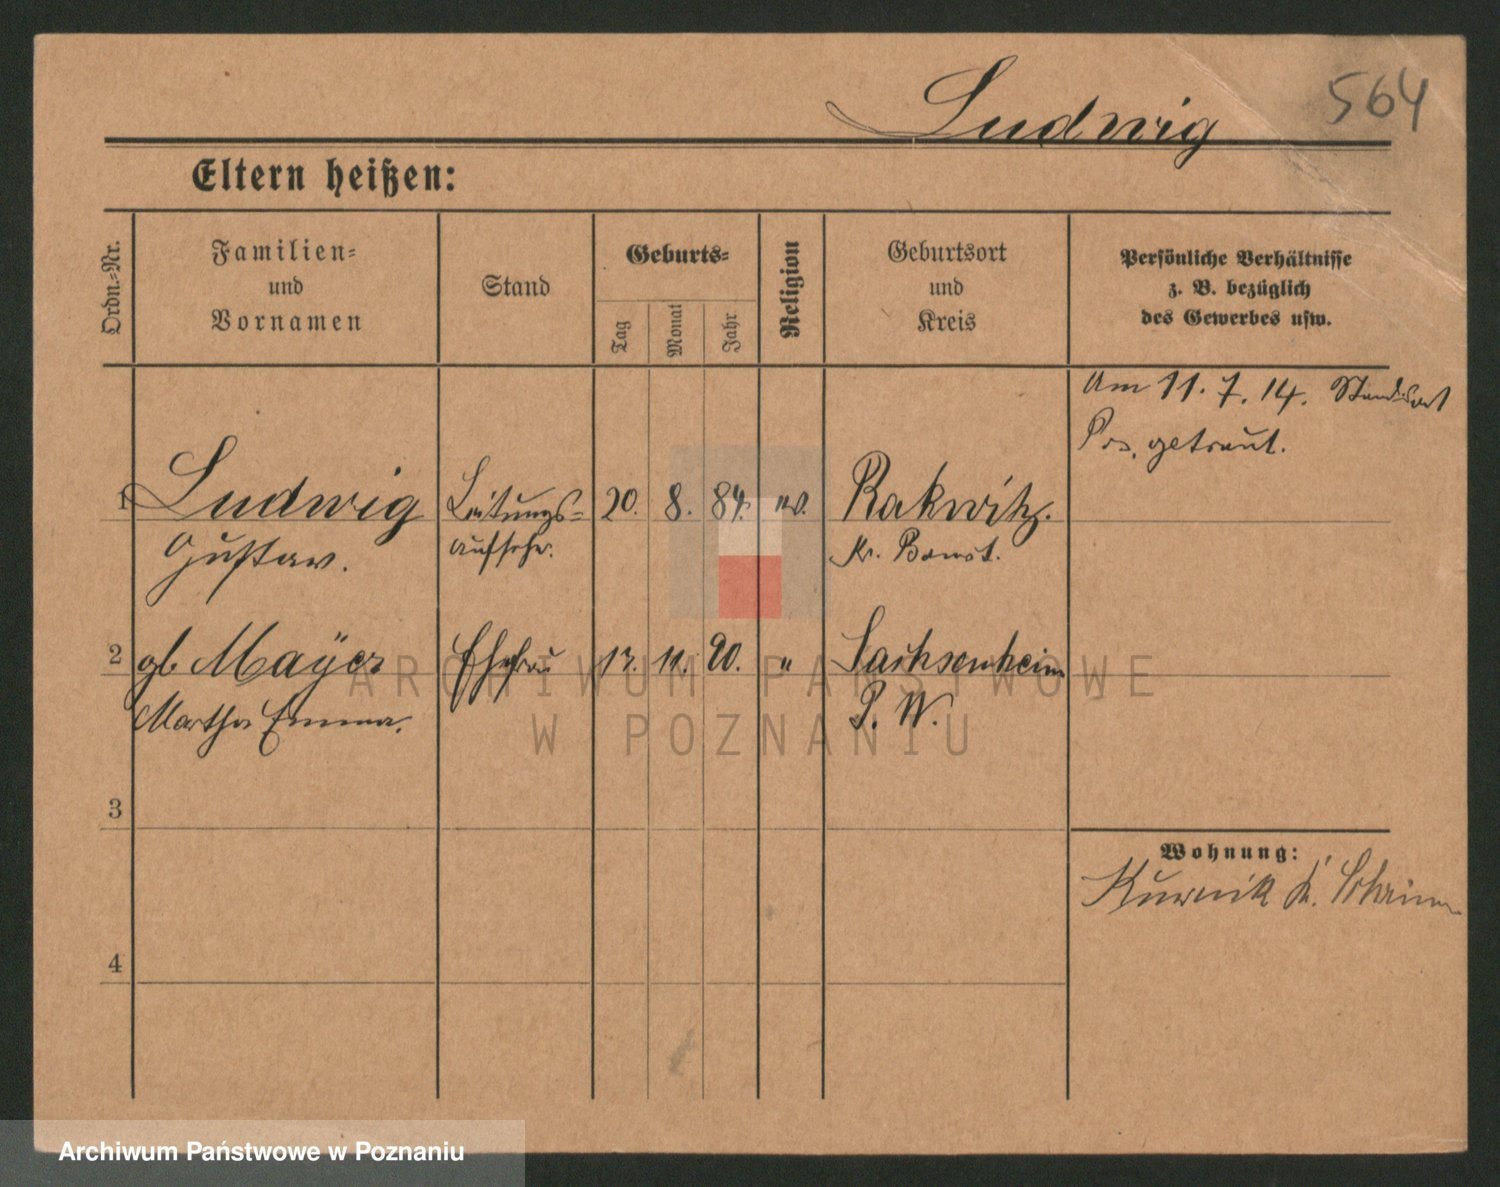 564
Ludwig
Eltern heißen:
Ordn.-Nr.
Familien- und Vornamen
Stand
Geburts-
Tag
Monat
Jahr
Religion
Geburtsort und Kreis
Persönliche Verhältnisse
z. B. bezüglich
des Gewerbes usw.
Am 11. 7. 14. Standesamt
Ps. getraut.
1 Ludwig Leitungs- 20. 8. 84. ev. Rakwitz.
Gustav. Aufseher. Kr. Bomst.
2 gb Mayer Ehefrau 11. 90. " Sachsenheim
Martha Emma. P. W.
3
Wohnung:
Kurnik Kr. Schrimm
4
ARCHIWUM PAŃSTWOWE
W POZNANIU
Archiwum Państwowe w Poznaniu